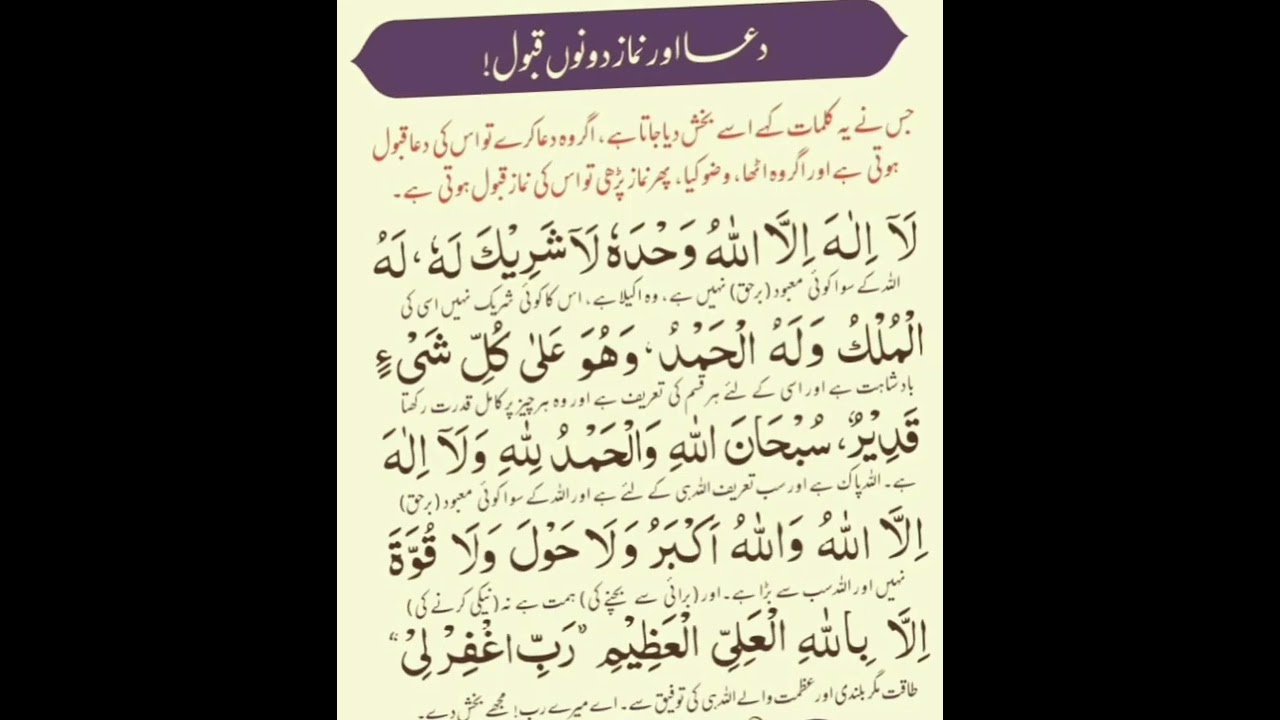 دعا اور نماز دونوں قبول!
جس نے یہ کلمات کہے اسے بخش دیا جاتا ہے، اگر وہ دعا کرے تو اس کی دعا قبول
ہوتی ہے اور اگر وہ اٹھا، وضو کیا، پھر نماز پڑھی تو اس کی نماز قبول ہوتی ہے۔
لَآ اِلٰهَ اِلَّا اللّٰهُ وَحْدَهٗ لَآ شَرِيْكَ لَهٗ، لَهُ
اللہ کے سوا کوئی معبود (برحق) نہیں ہے، وہ اکیلا ہے، اس کا کوئی شریک نہیں اسی کی
الْمُلْكُ وَلَهُ الْحَمْدُ، وَهُوَ عَلٰى كُلِّ شَىْءٍ
بادشاہت ہے اور اسی کے لئے ہر قسم کی تعریف ہے اور وہ ہر چیز پر کامل قدرت رکھتا
قَدِيْرٌ، سُبْحَانَ اللّٰهِ وَالْحَمْدُ لِلّٰهِ وَلَآ اِلٰهَ
ہے۔ اللہ پاک ہے اور سب تعریف اللہ ہی کے لئے ہے اور اللہ کے سوا کوئی معبود (برحق)
اِلَّا اللّٰهُ وَاللّٰهُ اَكْبَرُ وَلَا حَوْلَ وَلَا قُوَّةَ
نہیں اور اللہ سب سے بڑا ہے۔ اور (برائی سے بچنے کی) ہمت ہے نہ (نیکی کرنے کی)
اِلَّا بِاللّٰهِ الْعَلِيِّ الْعَظِيْمِ "رَبِّ اغْفِرْ لِىْ"
طاقت مگر بلندی اور عظمت والے اللہ ہی کی توفیق سے۔ اے میرے رب! مجھے بخش دے۔